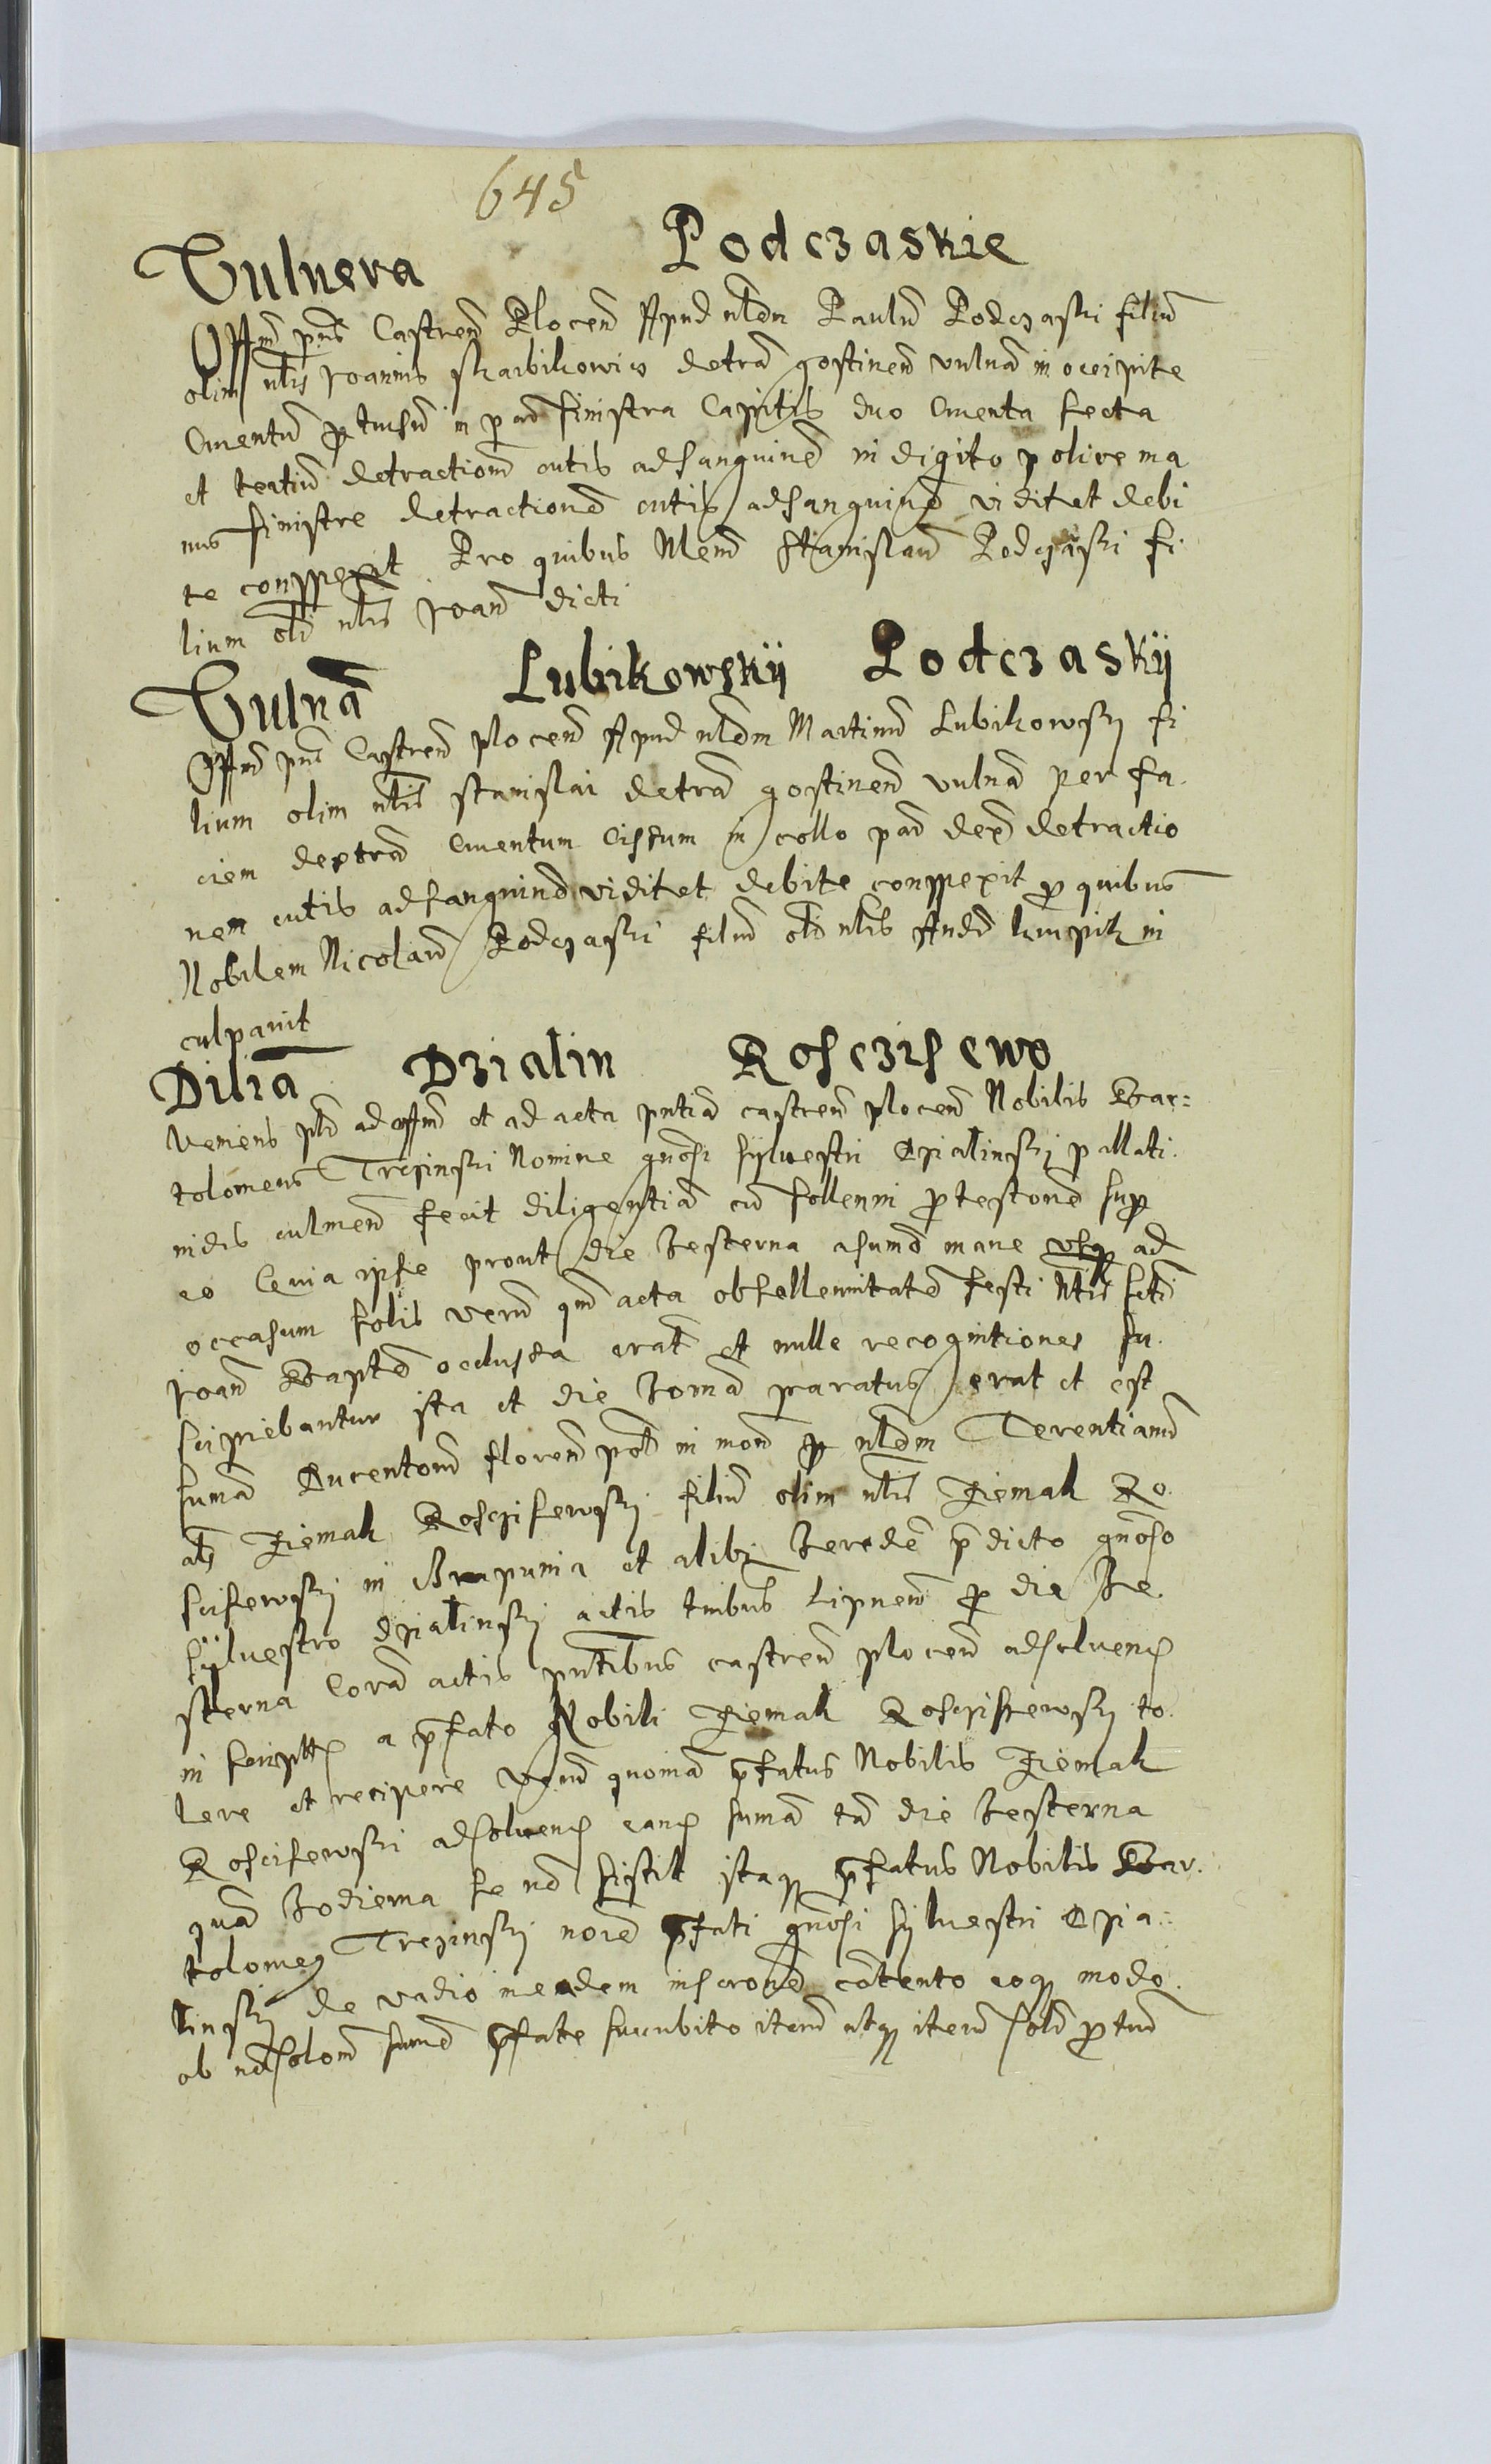 645
Vulnera Podczaskie
Offm pns Castren Plocen Apud nblem Paulu Podczaski filiu
olim nblis Joannis skarbikowicz de tra gostinen vulna in occipite
Cruentu ptusu in pad sinistra Capitis duo Cruenta secta
et tertiu detractiom cutis ad sanguine in digito polire ma
nus sinistre detractione cutis ad sanguine vidit et debi
te conspexit Pro quibus Nlem Stanislau Podczaski fi
lium oli nblis Joan dicti
Vulna Lubikowskij Podczaskij
Offm pns Castren plocen Apud nblem Martinu Lubikowski fi
lium olim nblis stanislai de tra gostinen vulna per fa
ciem dextra Cruentum Cissum in collo pad dex detractio
nem cutis ad sanguine vidit et debite conspexit p quibus
Nobilem Nicolau Podczaski filiu oli nblis And in
culpavit
Dilia Dzialin Rosczisewo
Veniens pld ad offm et ad acta pntia castren plocen Nobilis Bar=
tolomeus Trzinski Nomine gnosi sylvestri Dzialinski pallati
nidis culmen fecit diligentia cu sollenni ptestone sup
eo Quia ipse prout die hesterna a sumo mane usq ad
occasum solis veru qm acta ob sollennitate festi Ntis scti
Joan Bapte oclusa erat et nulle recognitiones su
scipiebantur ita et die hodna paratus erat et est
suma Ducentoru floren pol in mon p nblem Terentianu
als Ziemak Rosciszewski filiu olim nblis Ziemak Ro
sciszewski in et alibi herede pdicto gnoso
sylvestro dzialinski actis tribus Lipnen p die he
sterna Cora actis pntibus castren plocen adsolven
in script a pfato Nobili Ziemak Rosciszewski to
lere et recipere Veru quonia pfatus Nobilis Ziemak
Rosciszewski adsolven ean suma ta die hesterna
qua hodierna se no sistit itaq pfatus Nobilis Bar
tolomeus Trzinski noie pfati gnosi sylvestri Dzia=
linski de vadio in eadem inscrone contento eoq modo
ob nosolom sume pfate succubito iteru atq iteru solе ptur